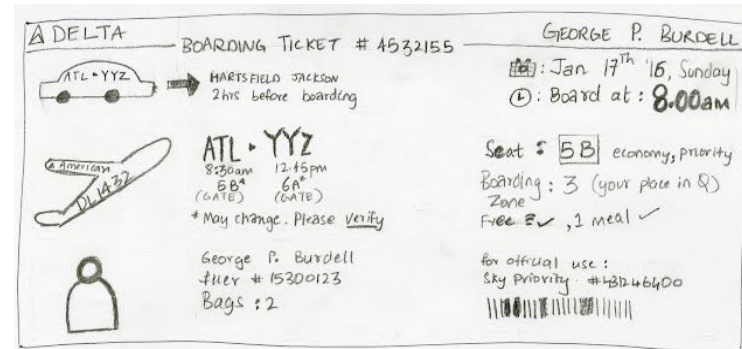 DELTA
BOARDING TICKET # 4532155
GEORGE P. BURDELL
ATL ▸ YYZ
HARTSFIELD JACKSON
2hrs before boarding
: Jan 17th '16, Sunday
: Board at : 8.00am
American
DL1432
ATL ▸ YYZ
8:30am 12.45pm
5B* 6A*
(GATE) (GATE)
* May change. Please verify
Seat : 5B economy, priority
Boarding : 3 (your place in Q)
Zone
Free ✓, 1 meal ✓
George P. Burdell
flier # 15300123
Bags : 2
for official use :
Sky Priority #